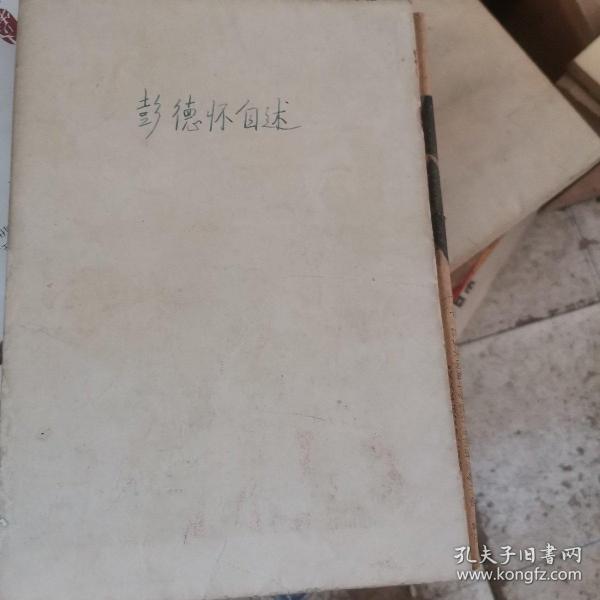 彭德怀自述
孔夫子旧书网
www.kongfz.com